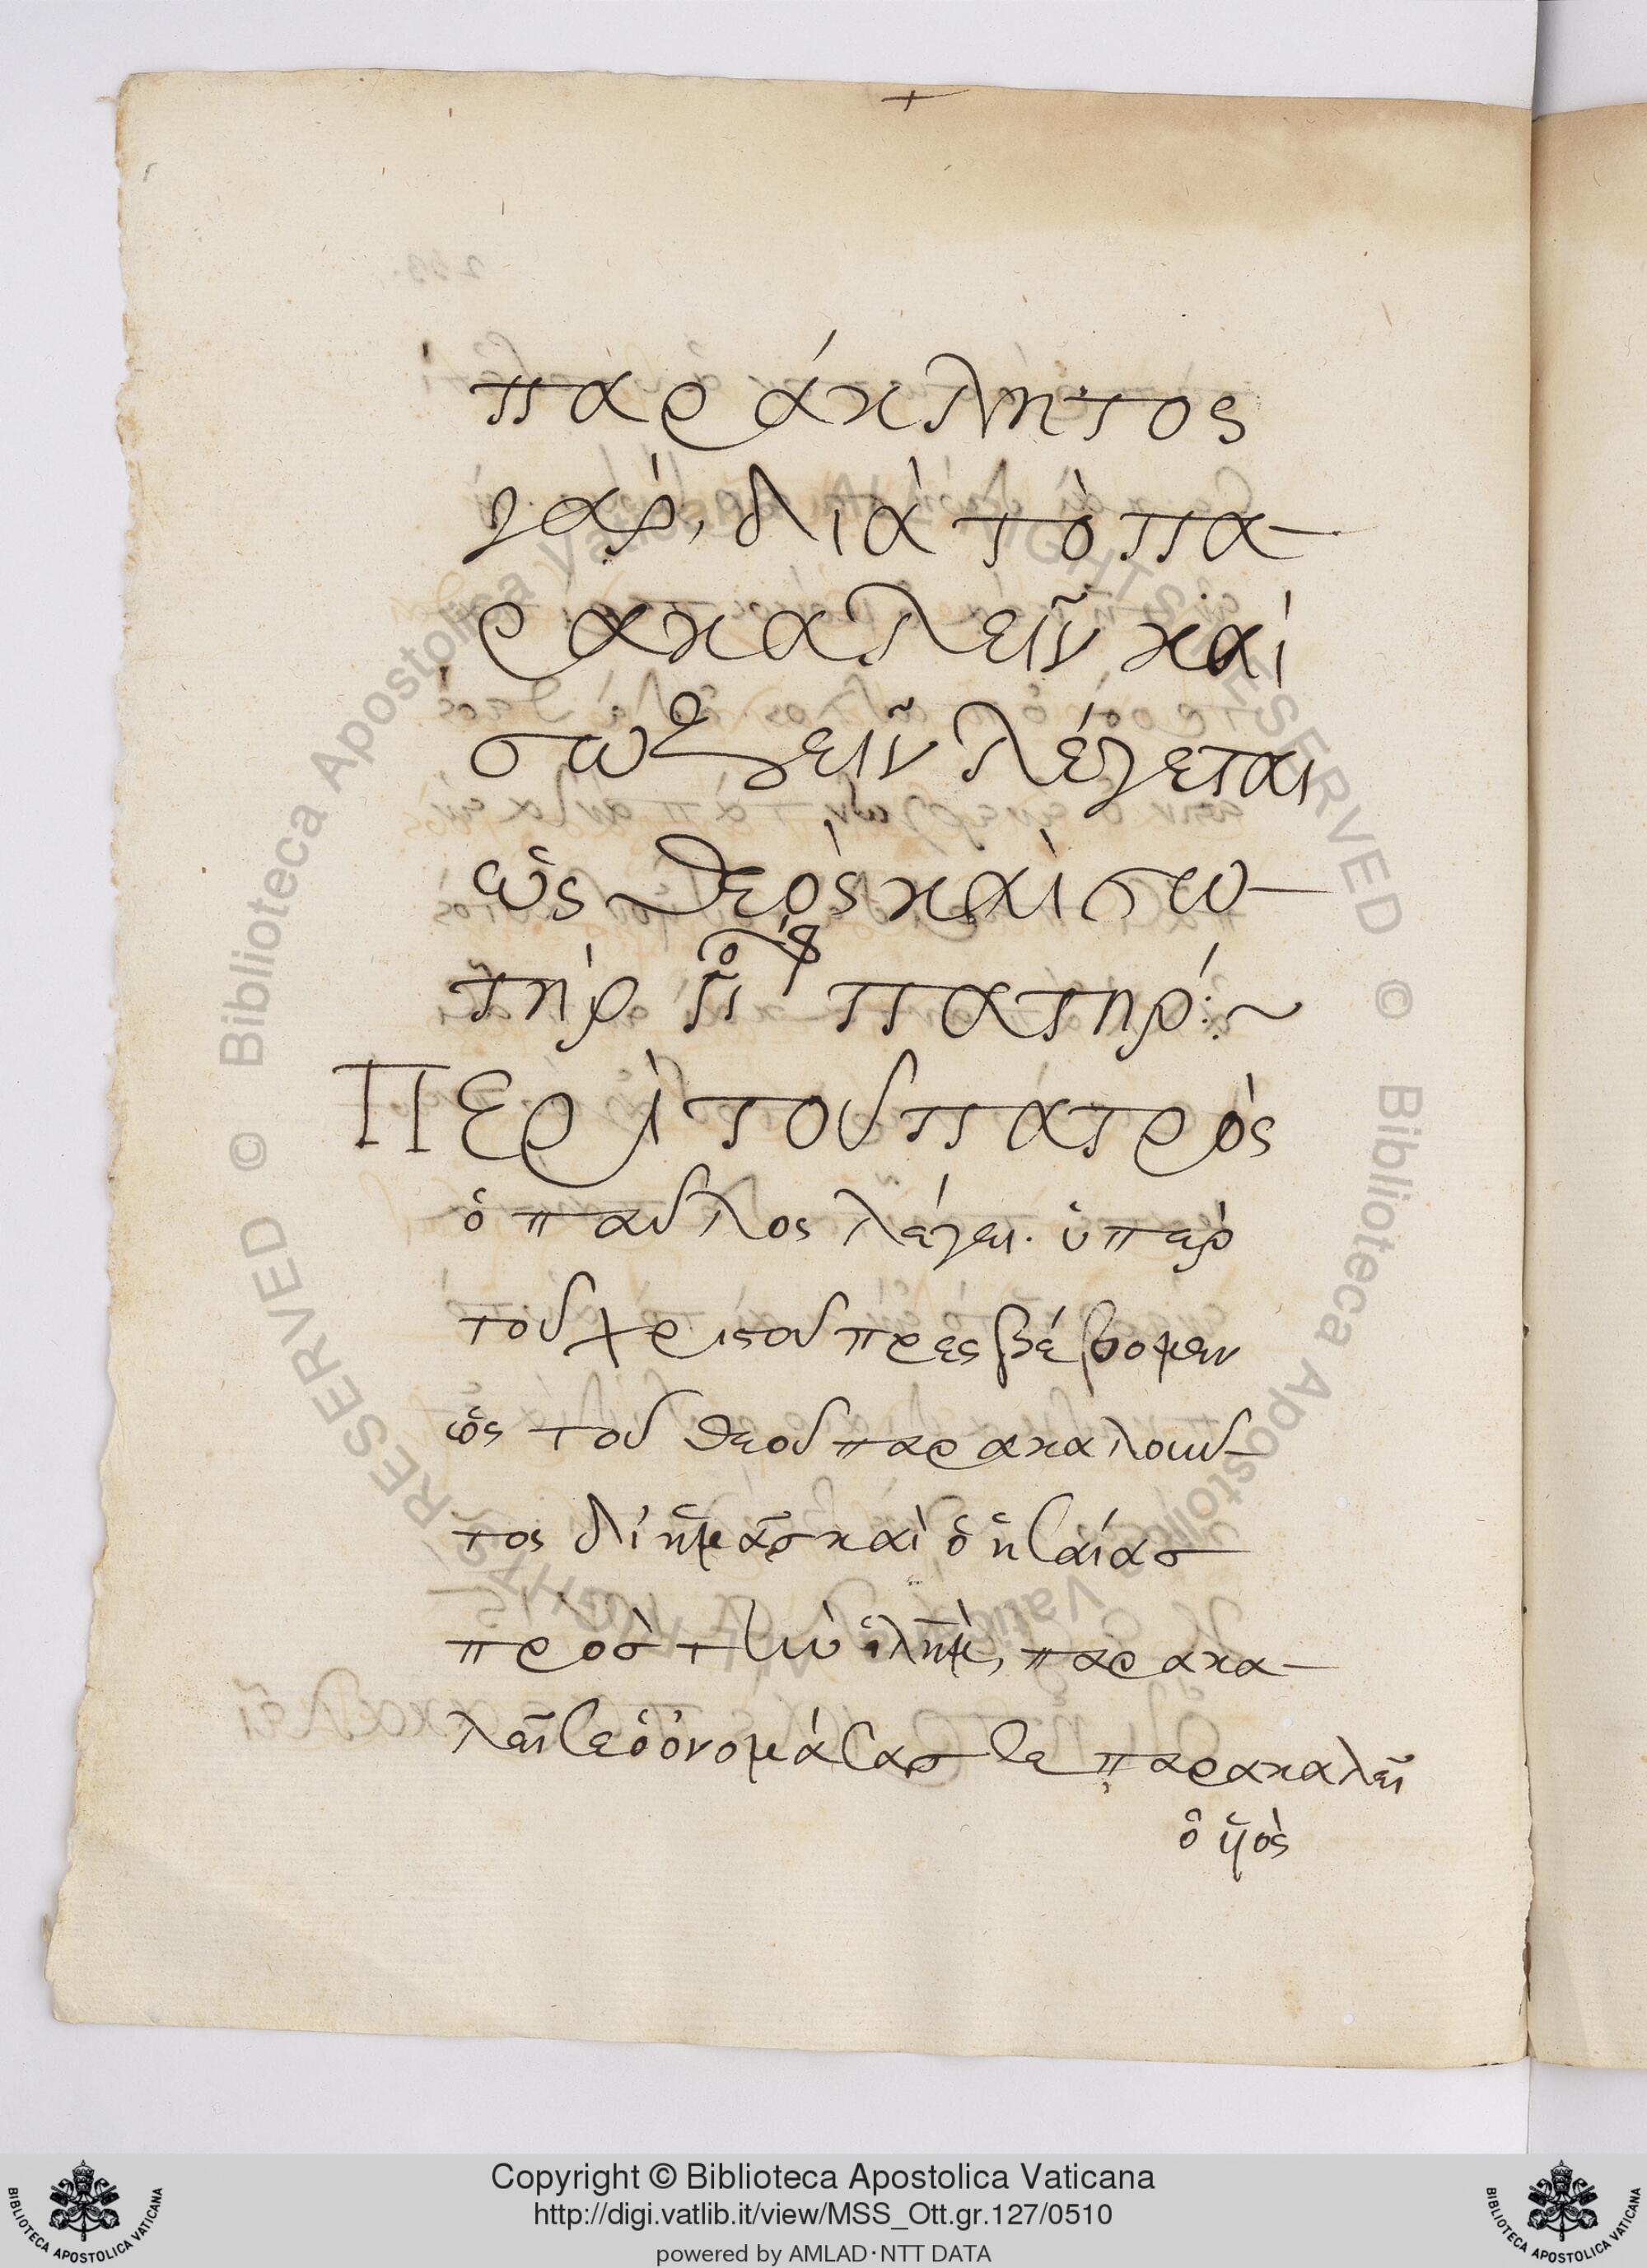 παράκλητος
γάρ, διὰ τὸ πα-
ρακαλεῖν καὶ
σώζειν λέγεται
ὡς θεὸς καὶ σω-
τὴρ πατήρ:~
Περὶ τοῦ πατρὸς
ὁ παῦλος λέγει. ὑπὲρ
τοῦ χριστοῦ πρεσβέβομεν
ὡς τοῦ θεοῦ παρακαλουν-
τος δι' ἡμᾶσ καὶ ὁ ἡσαίασ
πρὸσ τὴν ἱλῆμ, παρακα-
λεῖ σε ὁ ὀνομάσασ σε παρακαλεῖ
ὁ υἱὸς
© Biblioteca Apostolica Vaticana ALL RIGHTS RESERVED
© Biblioteca Apostolica Vaticana ALL RIGHTS RESERVED
Copyright © Biblioteca Apostolica Vaticana
http://digi.vatlib.it/view/MSS_Ott.gr.127/0510
powered by AMLAD·NTT DATA
BIBLIOTECA APOSTOLICA VATICANA
BIBLIOTECA APOSTOLICA VATICANA